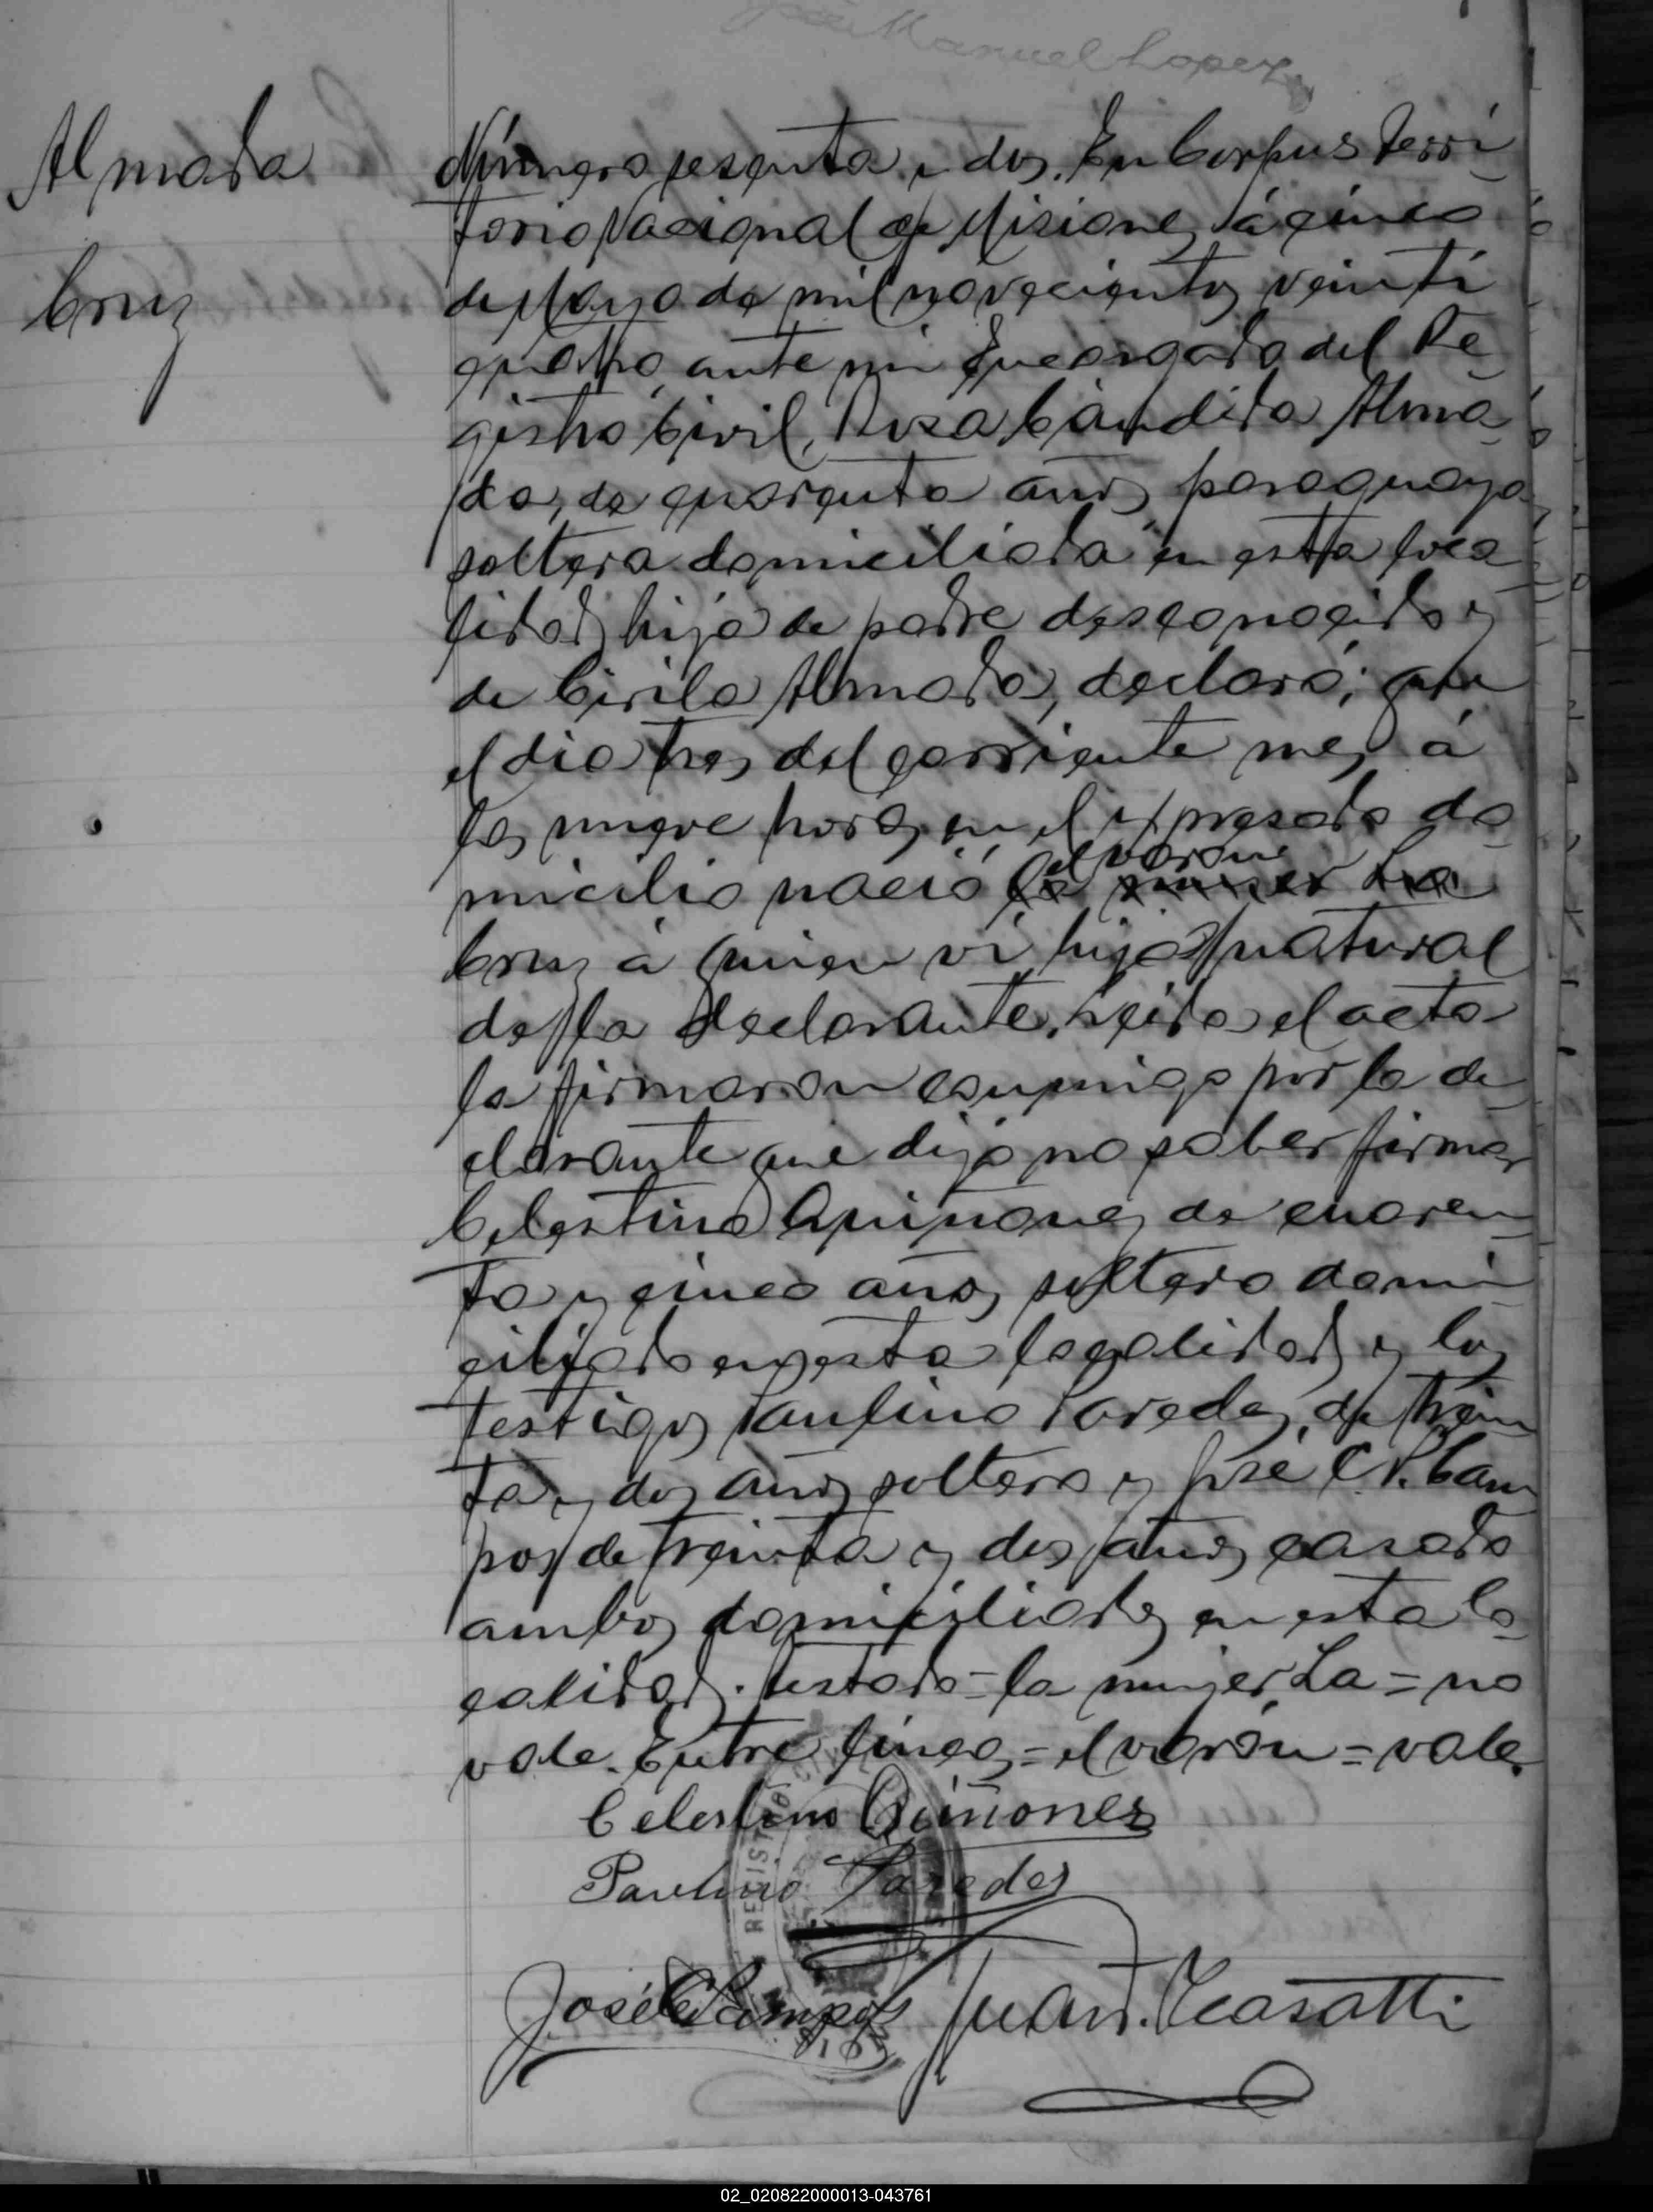 José Manuel Lopez
Almada
Cruz
Número sesenta y dos. En Corpus Terri
torio Nacional de Misiones, á cinco
de Mayo de mil novecientos veinti
cuatro, ante mi Encargado del Re
gistro Civil, Rosa Cándida Alma
da, de cuarenta años, paraguaya
soltera domiciliada en esta loca
lidad, hija de padre desconocido y
de Cirila Almada, declaró; que
el dia tres del corriente mes á
las nueve horas en el expresado do
el varon
micilio nació la mujer La
Cruz á quien vi hijo natural
de la declarante. Leida el acta
la firmaron conmigo por la de
clarante que dijo no saber firmar
Celestino Quiñones de cuaren
ta y cinco años, soltero domi
ciliado en esta localidad y los
testigos Paulino Paredes, de trein
ta y dos años soltero y José C. P. Cam
pos de treinta y dos años casado
ambos domiciliados en esta lo
calidad. Testado = la mujer La = no
vale. Entre lineas = el varón = vale.
Celestino Quiñones
Paulino Paredes
José C Campos Juan. Casatti
REGISTRO CIVIL
02_020822000013-043761